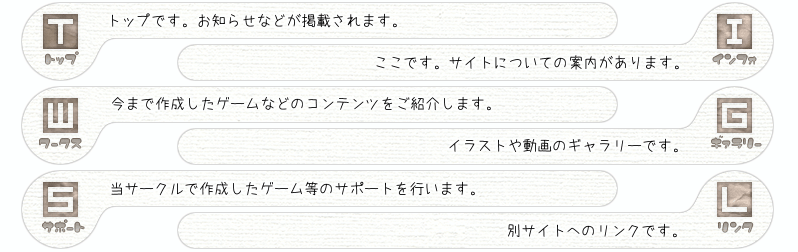 T
トップ
トップです。お知らせなどが掲載されます。
I
インフォ
ここです。サイトについての案内があります。
W
ワークス
今まで作成したゲームなどのコンテンツをご紹介します。
G
ギャラリー
イラストや動画のギャラリーです。
S
サポート
当サークルで作成したゲーム等のサポートを行います。
L
リンク
別サイトへのリンクです。